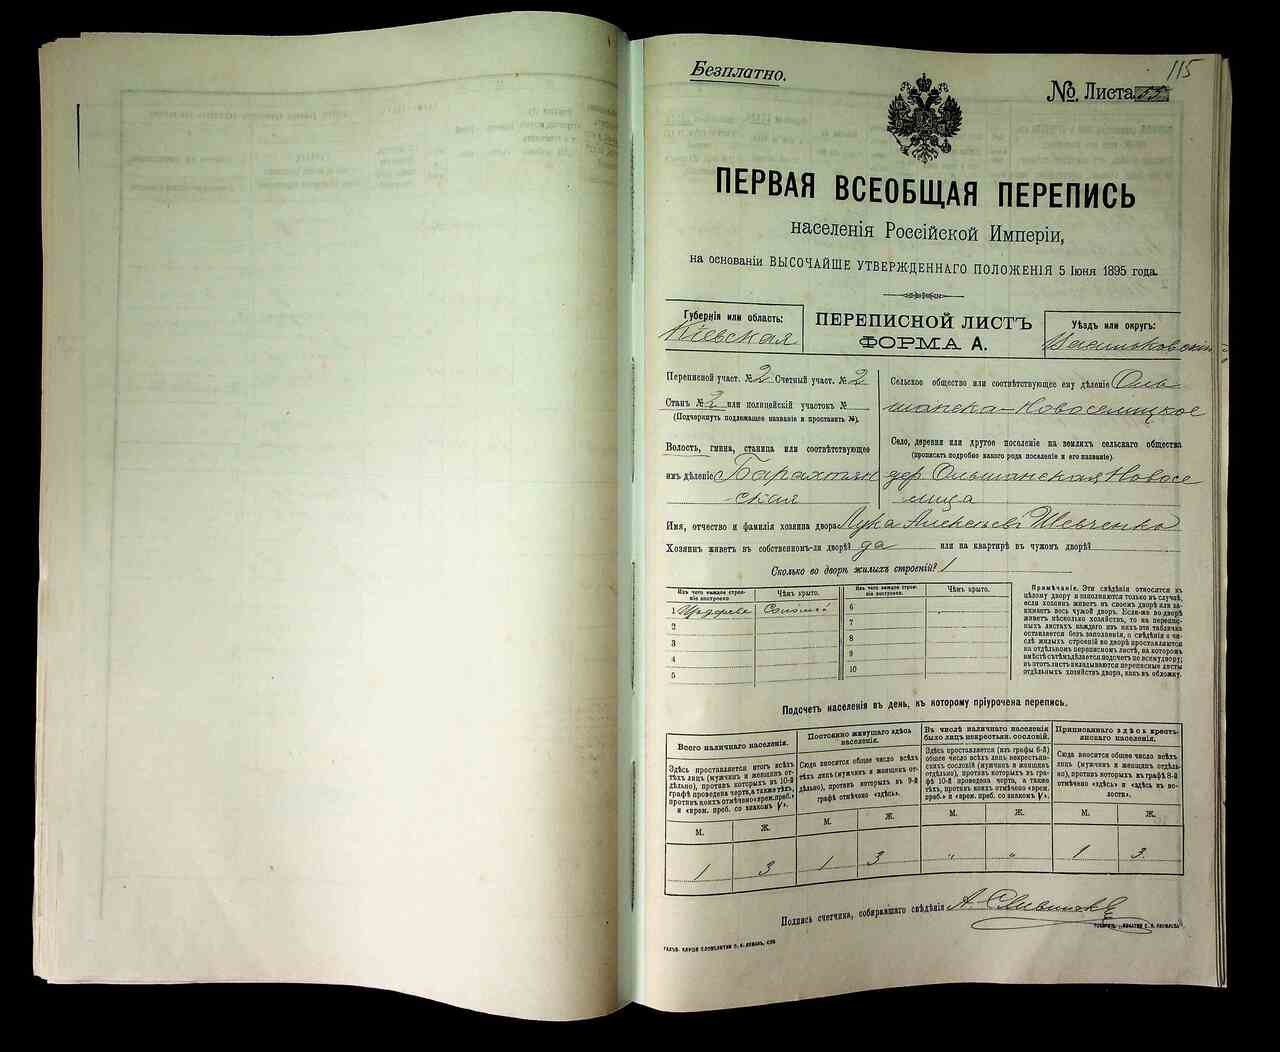 115
Безплатно.
№ Листа 55
ПЕРВАЯ ВСЕОБЩАЯ ПЕРЕПИСЬ
населенія Россійской Имперіи,
на основаніи ВЫСОЧАЙШЕ УТВЕРЖДЕННАГО ПОЛОЖЕНІЯ 5 Іюня 1895 года.
Губернія или область:
Кіевская
ПЕРЕПИСНОЙ ЛИСТЪ
ФОРМА А.
Уѣздъ или округъ:
Васильковскій
Переписной участ. № 2 Счетный участ. № 2
Станъ № 2 или полицейскій участокъ №
(Подчеркнуть подлежащее названіе и проставить №).
Волость, гмина, станица или соотвѣтствующее
имъ дѣленіе Барахтян
ская
Сельское общество или соотвѣтствующее ему дѣленіе Оль
шанско-Новоселицкое
Село, деревня или другое поселеніе на земляхъ сельскаго общества
(прописать подробно какого рода поселеніе и его названіе).
дер Ольшанская Новосе
лица
Имя, отчество и фамилія хозяина двора Лука Алексѣевъ Шевченко
Хозяинъ живетъ въ собственномъ-ли дворѣ? да или на квартирѣ въ чужомъ дворѣ?
Сколько во дворѣ жилыхъ строеній? 1
Изъ чего каждое строе-
ніе построено
Чѣмъ крыто.
1 Издерева Соломой
2
3
4
5
Изъ чего каждое строе-
ніе построено.
Чѣмъ крыто.
6
7
8
9
10
Примѣчаніе. Эти свѣдѣнія относятся къ
цѣлому двору и заполняются только въ случаѣ,
если хозяинъ живетъ въ своемъ дворѣ или за-
нимаетъ весь чужой дворъ. Если-же во дворѣ
живетъ нѣсколько хозяйствъ, то на перепис-
ныхъ листахъ каждаго изъ нихъ эта табличка
оставляется безъ заполненія, а свѣдѣнія о чи-
слѣ жилыхъ строеній во дворѣ проставляются
на отдѣльномъ переписномъ листѣ, на которомъ
вмѣстѣ съ тѣмъ дѣлается подсчетъ по всему двору;
въ этотъ листъ вкладываются переписные листы
отдѣльныхъ хозяйствъ двора, какъ въ обложку.
Подсчетъ населенія въ день, къ которому пріурочена перепись.
Всего наличнаго населенія.
Здѣсь проставляется итогъ всѣхъ
тѣхъ лицъ (мужчинъ и женщинъ от-
дѣльно), противъ которыхъ въ 10-й
графѣ проведена черта, а также тѣхъ,
противъ коихъ отмѣчено «врем. преб.»
и «врем. преб. со знакомъ V».
М. Ж.
1 3
Постоянно живущаго здѣсь
населенія.
Сюда вносится общее число всѣхъ
тѣхъ лицъ (мужчинъ и женщинъ от-
дѣльно), противъ которыхъ въ 9-й
графѣ отмѣчено «здѣсь».
М. Ж.
1 3
Въ числѣ наличнаго населенія
было лицъ некрестьян. сословій.
Здѣсь проставляется (изъ графы 6-й)
общее число всѣхъ лицъ некрестьян-
скихъ сословій (мужчинъ и женщинъ
отдѣльно), противъ которыхъ въ гра-
фѣ 10-й проведена черта, а также
тѣхъ, противъ коихъ отмѣчено «врем.
преб.» и «врем. преб. со знакомъ V».
М. Ж.
" "
Приписаннаго здѣсь кресть-
янскаго населенія.
Сюда вносится общее число всѣхъ
лицъ (мужчинъ и женщинъ отдѣль-
но), противъ которыхъ въ графѣ 8-й
отмѣчено «здѣсь» и «здѣсь въ во-
лости».
М. Ж.
1 3.
Подпись счетчика, собиравшаго свѣдѣнія А.